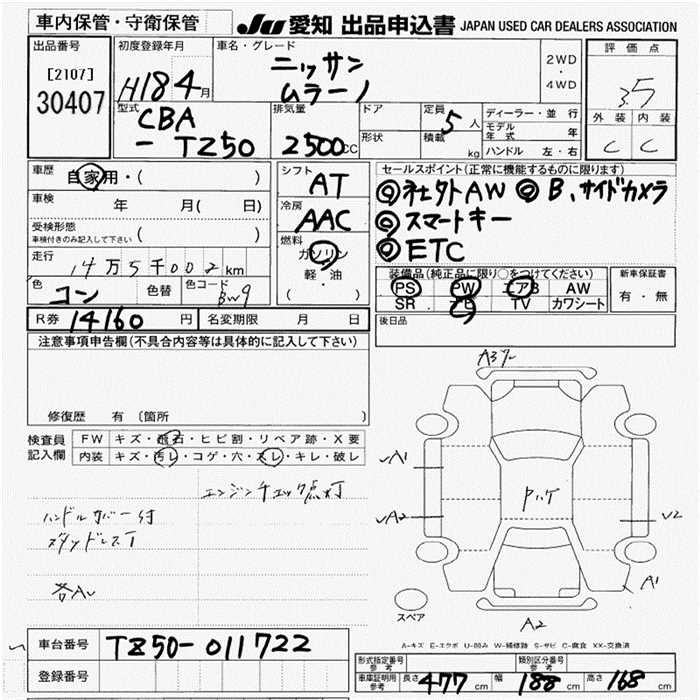 車内保管・守衛保管
JU 愛知 出品申込書 JAPAN USED CAR DEALERS ASSOCIATION
出品番号
[2107]
30407
初度登録年月
H18 4月
車名・グレード
ニッサン
ムラーノ
2WD
・
4WD
評価点
3.5
外装 内装
C C
型式
CBA
- TZ50
排気量
2500cc
ドア
形状
定員 5人
積載 kg
ディーラー・並行
モデル年式 年
ハンドル 左・右
車歴 自家用・( )
車検 年 月( 日)
受検形態
車検付きのみ記入して下さい ( )
走行 14万5千002km
色 コン 色替 色コード BW9
R券 14160円 名変期限 月 日
シフト
AT
冷房
AAC
燃料
ガソリン
軽・油
( )
セールスポイント(正常に機能するものに限ります)
◎社外AW ◎B、サイドカメラ
◎スマートキー
◎ETC
装備品(純正品に限り○をつけてください)
PS PW エアB AW
SR ナビ TV カワシート
新車保証書
有・無
後日品
注意事項申告欄(不具合内容等は具体的に記入して下さい)
修復歴 有 〔箇所 〕
検査員記入欄
FW キズ・飛石・ヒビ割・リペア跡・X要
内装 キズ・汚レ・コゲ・穴・スレ・キレ・破レ
エンジンチェック点灯
ハンドルカバー付
スタッドレスT
各AU
A3
A1
A2
V2
A1
A2
スペア
A-キズ E-エクボ U-凹み W-補修跡 S-サビ C-腐食 XX-交換済
車台番号 TZ50-011722
登録番号
形式指定番号 参考
類別区分番号 参考
車庫証明用 参考 長さ 477cm 幅 188cm 高さ 168cm